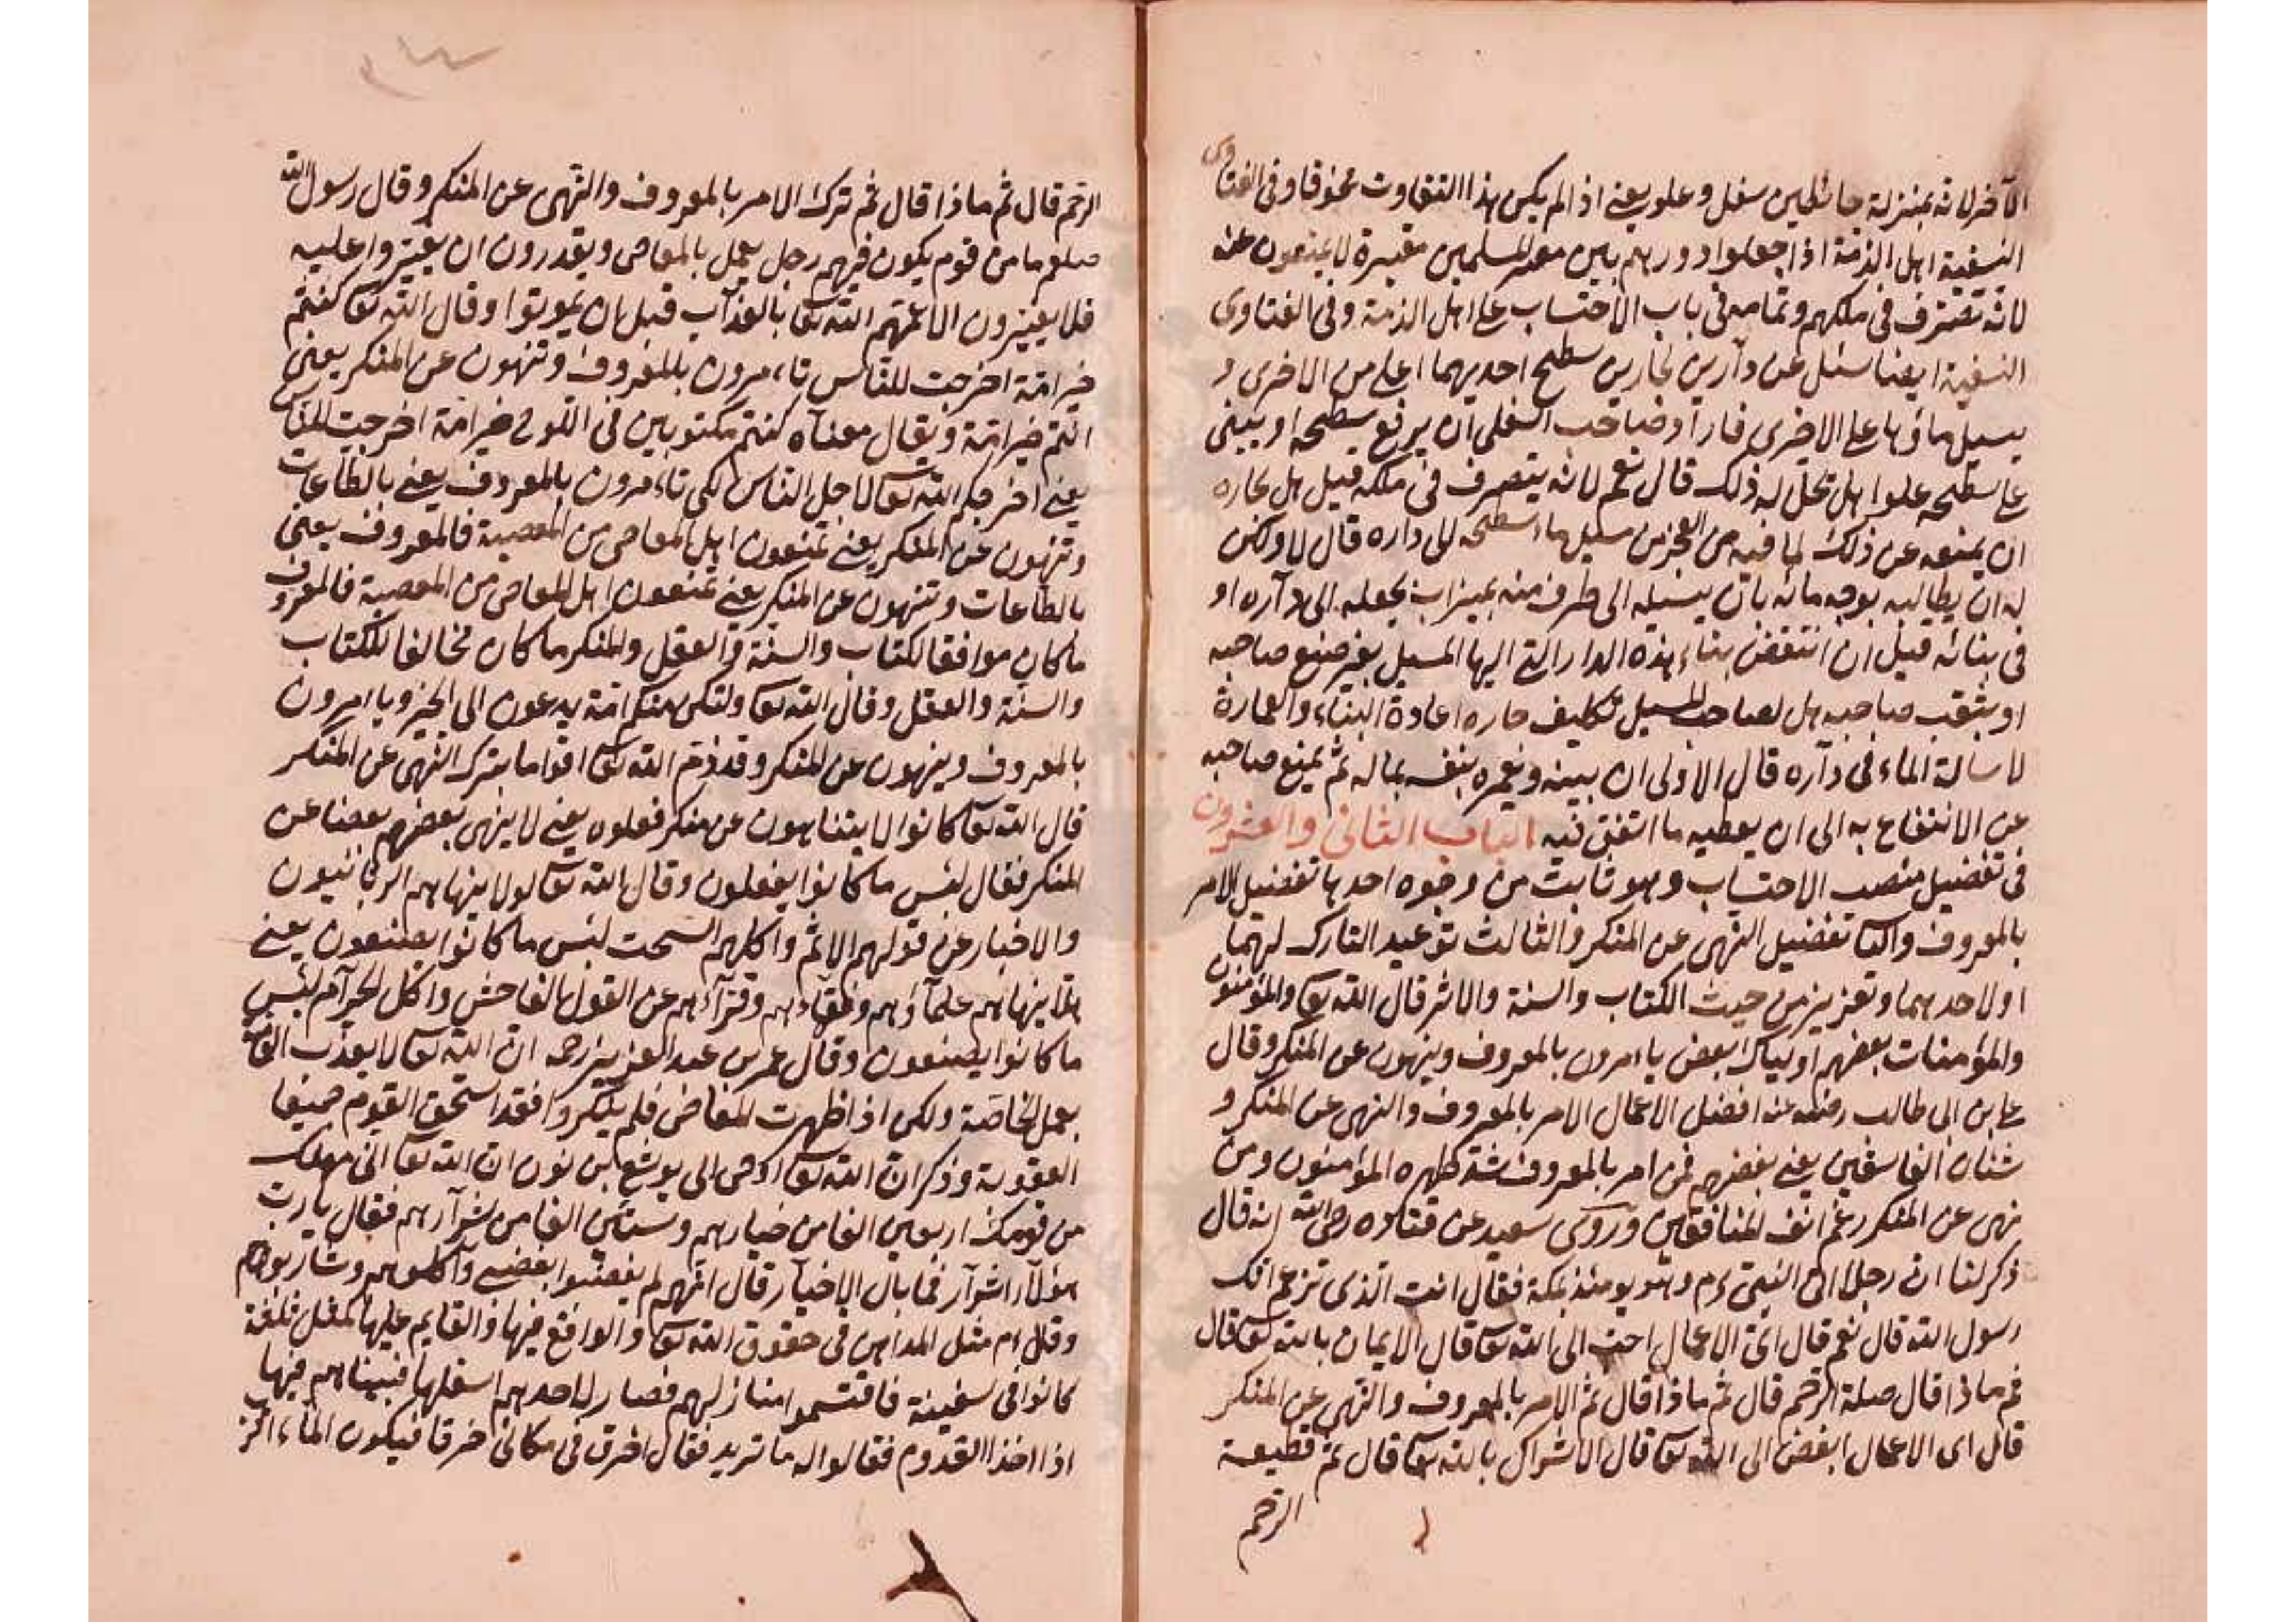 الآخر لانه بمنزلة حائطين سفل وعلو يعنے اذا لم يكن هذا التفاوت مخوفا وفى الفتاوى
النسفية اهل الذمة اذا جعلوا دورهم بين مصر المسلمين مقبرة لا يمنعون عنه
لانه تصرف فى ملكهم وتمامه فى باب الاحتساب على اهل الذمة وفى الفتاوى
النسفية ايضا سئل عن دارين لجارين سطح احديهما اعلى من الاخرى و
يسيل ماؤها على الاخرى فاراد صاحب السفلى ان يرفع سطحه او يبنى
على سطحه علوا هل تحل له ذلك قال نعم لانه يتصرف فى ملكه قيل هل لجاره
ان يمنعه عن ذلك لما فيه من العجز من سيل ماء سطحه الى داره قال لا ولكن
له ان يطالبه بوجه مائه بان يسيله الى طرف منه بميزاب يجعله الى داره او
فى بنائه قيل ان انتقض بناء هذه الدار التے اليها المسيل بغير صنع صاحبه
او بنقب صاحبه هل لصاحب المسيل تكليف جاره اعادة البناء والعمارة
لاسالة الماء فى داره قال الاولى ان يبنيه ويعمره بنفسه بماله ثم يمنع صاحبه
عن الانتفاع به الى ان يعطيه ما انفق فيه الباب الثانى والعشرون
فى تفضيل منصب الاحتساب وهو ثابت من وجوه احدها تفضيل الامر
بالمعروف والثا تفضيل النهى عن المنكر والثالث توعيد التارك لهما
او لاحدهما وتعزيز من حيث الكتاب والسنة والاثر قال الله تعا والمؤمنون
والمؤمنات بعضهم اولياء بعض يامرون بالمعروف وينهون عن المنكر وقال
على بن ابى طالب رضى الله عنه افضل الاعمال الامر بالمعروف والنهى عن المنكر و
شنان الفاسقين يعنے بغضهم فمن امر بالمعروف شد ظهره المؤمنون ومن
نهى عن المنكر رغم انف المنافقين وروى سعيد عن قتاده رضى الله انه قال
ذكر لنا ان رجلا اتى النبى ءم وهو يومئذ بمكة فقال انت الذى تزعم انك
رسول الله قال نعم قال اى الاعمال احب الى الله تعا قال الايمان بالله تعا قال
ثم ماذا قال صلة الرحم قال ثم ماذا قال ثم الامر بالمعروف والنهى عن المنكر
قال اى الاعمال ابغض الى الله تعا قال الاشراك بالله تعا قال ثم قطيعة
الرحم
الرحم قال ثم ماذا قال ثم ترك الامر بالمعروف والنهى عن المنكر وقال رسول الله
صلعم ما من قوم يكون فيهم رجل يعمل بالمعاصى ويقدرون ان يغيروا عليه
فلا يغيرون الا عمهم الله تعا بالعذاب قبل ان يموتوا وقال الله تعا كنتم
خير امة اخرجت للناس تاءمرون بالمعروف وتنهون عن المنكر يعنى
انتم خير امة ويقال معناه كنتم مكتوبين فى اللوح خير امة اخرجت للناس
يعنے اخرجكم الله تعا لاجل الناس لكى تاءمرون بالمعروف يعنے بالطاعات
وتنهون عن المنكر يعنے تمنعون اهل المعاصى من المعصية فالمعروف يعنى
بالطاعات وتنهون عن المنكر يعنے تمنعون اهل المعاصى من المعصية فالمعروف
ما كان موافقا لكتاب والسنة والعقل والمنكر ما كان مخالفا للكتاب
والسنة والعقل وقال الله تعا ولتكن منكم امة يدعون الى الخير وياءمرون
بالمعروف وينهون عن المنكر وقد ذم الله تعا اقواما بترك النهى عن المنكر
قال الله تعا كانوا لا يتناهون عن منكر فعلوه يعنے لا ينهى بعضهم بعضا عن
المنكر فقال لبئس ما كانوا يفعلون وقال الله تعا لولا ينهاهم الربانيون
والاحبار عن قولهم الاثم واكلهم السحت لبئس ما كانوا يصنعون يعنے
هلا ينهاهم علماؤهم وفقهاءهم وقراءهم عن القول الفاحش واكل الحرام لبئس
ما كانوا يصنعون وقال عمر بن عبد العزيز رحمه ان الله تعا لا يعذب العامة
بعمل الخاصة ولكن اذا ظهرت المعاصى فلم ينكروا فقد استحق القوم جميعا
العقوبة وذكر ان الله تعا اوحى الى يوشع بن نون ان الله تعا انى مهلك
من قومك اربعين الفا من خيارهم وستين الفا من شرارهم فقال يا رب
هؤلاء اشرار فما بال الاخيار قال انهم لم يغضبوا بغضبے واكلوهم وشاربوهم
وقال ءم مثل المداهن فى حقوق الله تعا والواقع فيها والقايم عليها كمثل ثلثة
كانوا فى سفينة فاقتسموا منازلهم فصار لاحدهم اسفلها فبيناهم فيها
اذا اخذ القدوم فقالوا له ما تريد فقال اخرق فى مكانى خرقا فيكون الماء اقرب